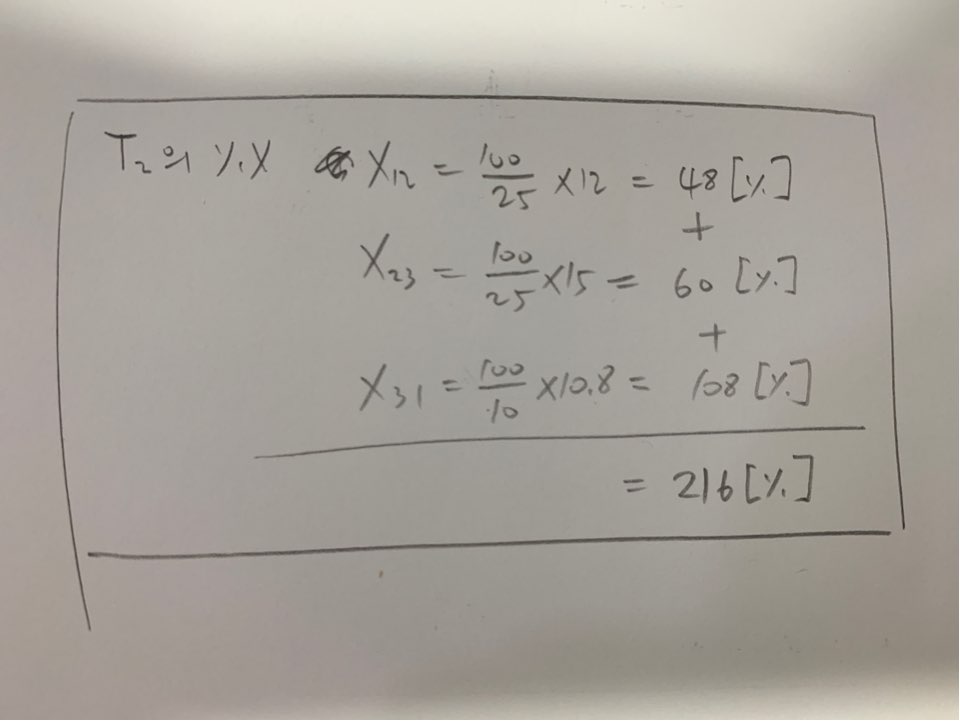 T₂의 %X X₁₂ = 100/25 ×12 = 48 [%]
+
X₂₃ = 100/25 ×15 = 60 [%]
+
X₃₁ = 100/10 ×10.8 = 108 [%]
= 216 [%]